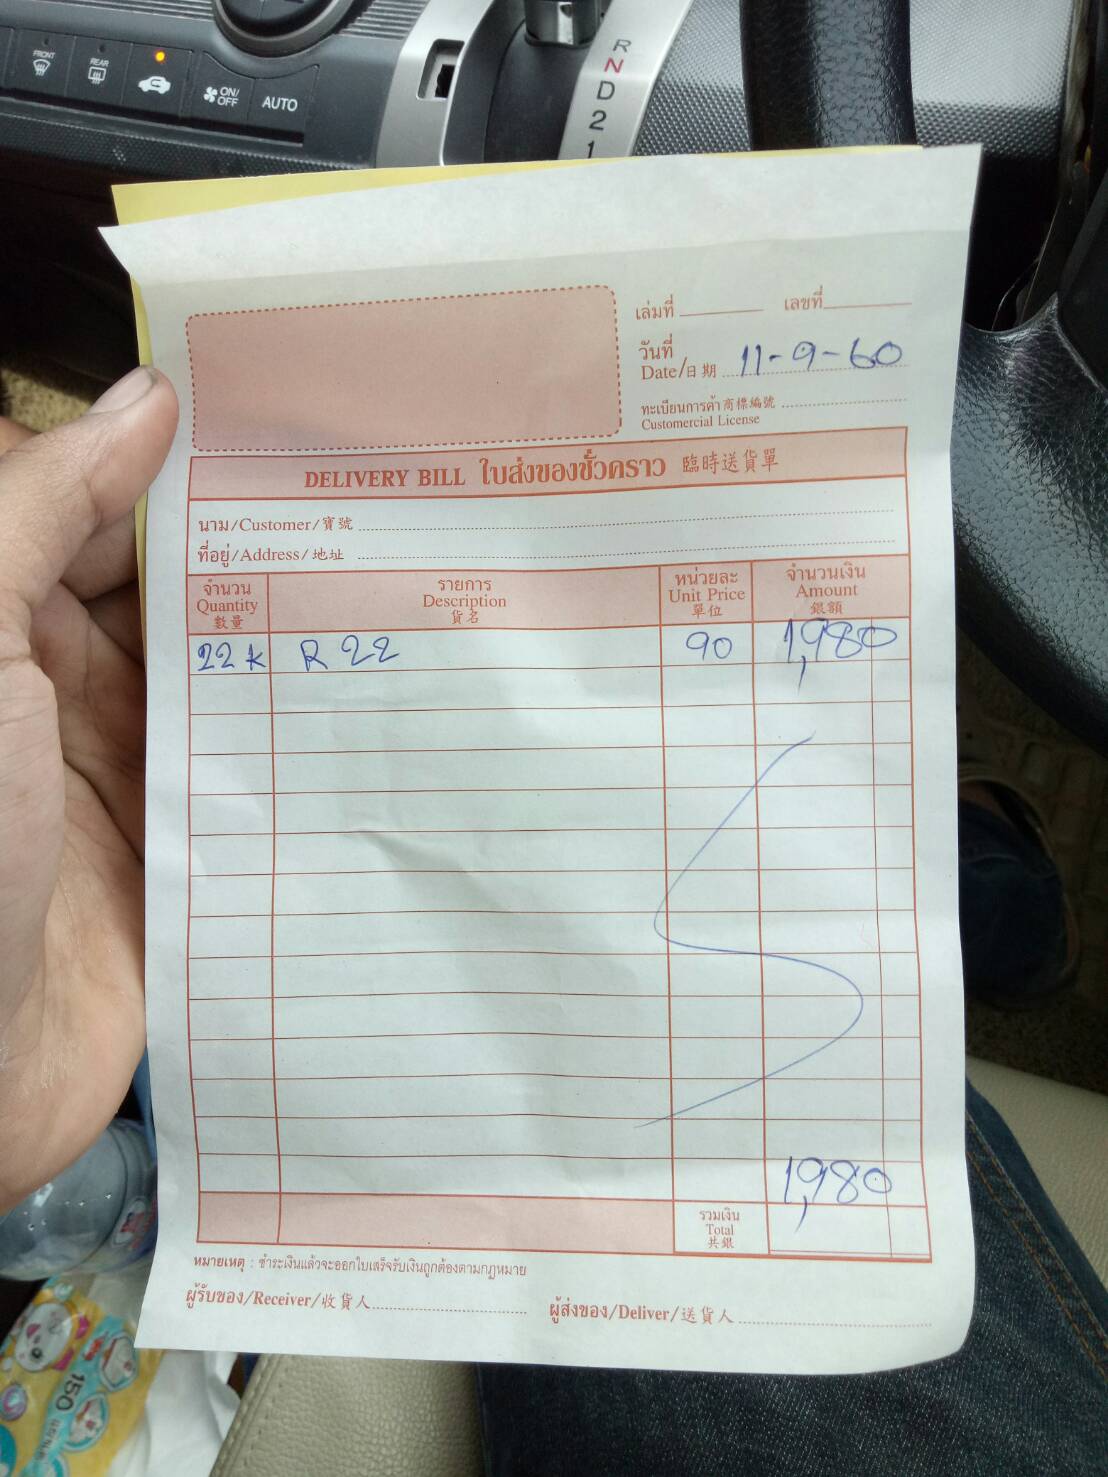 FRONT REAR ON/OFF AUTO
R
N
D
2
1
เล่มที่ เลขที่
วันที่
Date/日期 11-9-60
ทะเบียนการค้า 商標編號
Customercial License
DELIVERY BILL ใบส่งของชั่วคราว 臨時送貨單
นาม/Customer/寶號
ที่อยู่/Address/地址
จำนวน รายการ หน่วยละ จำนวนเงิน
Quantity Description Unit Price Amount
數量 貨名 單位 銀額
22 K R 22 90 1,980
1,980
รวมเงิน
Total
共銀
หมายเหตุ : ชำระเงินแล้วจะออกใบเสร็จรับเงินถูกต้องตามกฎหมาย
ผู้รับของ/Receiver/收貨人 ผู้ส่งของ/Deliver/送貨人
150